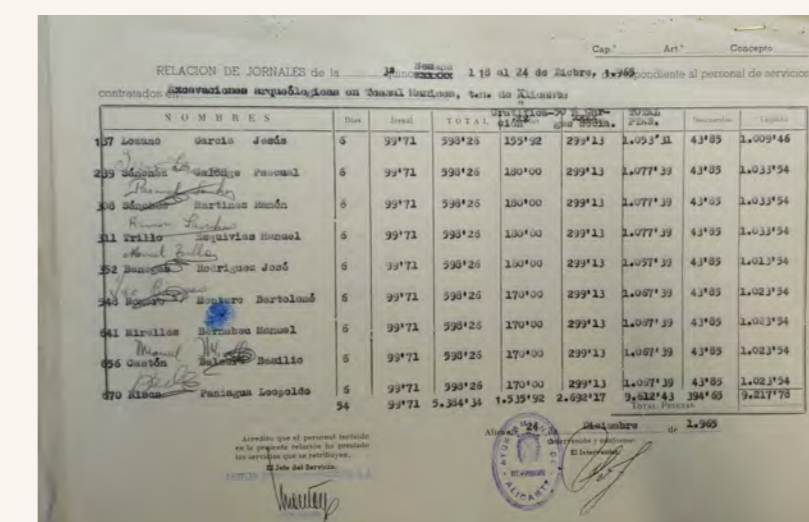 Cap.º Art.º Concepto
RELACION DE JORNALES de la 1ª Semana 1 18 al 24 de Dicbre, 1.965 correspondiente al personal de servicios
contratados en Excavaciones arqueólogicas en Tossal Manises, t.m. de Alicante
NOMBRES Días Jornal TOTAL Gratificación TOTAL PTAS. Descuentos Líquido
137 Lozano García Jesús 6 99'71 598'26 155'92 299'13 1.053'31 43'85 1.009'46
239 Sánchez Galonge Pascual 6 99'71 598'26 180'00 299'13 1.077'39 43'85 1.033'54
Pascual Sánchez
306 Sánchez Martinez Ramón 6 99'71 598'26 180'00 299'13 1.077'39 43'85 1.033'54
Ramon Sanchez
311 Trillo Esquivias Manuel 6 99'71 598'26 180'00 299'13 1.077'39 43'85 1.033'54
Manuel Trillo
352 Banegas Rodriguez José 6 99'71 598'26 160'00 299'13 1.057'39 43'85 1.013'54
548 Romero Monturo Bartolomé 6 99'71 598'26 170'00 299'13 1.067'39 43'85 1.023'54
641 Miralles Bernabeu Manuel 6 99'71 598'26 170'00 299'13 1.067'39 43'85 1.023'54
Manuel
656 Gastón Basilio 6 99'71 598'26 170'00 299'13 1.067'39 43'85 1.023'54
670 Paniagua Leopoldo 6 99'71 598'26 170'00 299'13 1.067'39 43'85 1.023'54
54 99'71 5.384'34 1.535'92 2.692'17 9.612'43 394'65 9.217'78
TOTAL PESETAS
Acredito que el personal incluido
en la presente relación ha prestado
los servicios que se retribuyen.
El Jefe del Servicio.
Alicante 24 de Diciembre de 1.965
Intervenido y conforme:
El Interventor,
AYUNTAMIENTO DE ALICANTE